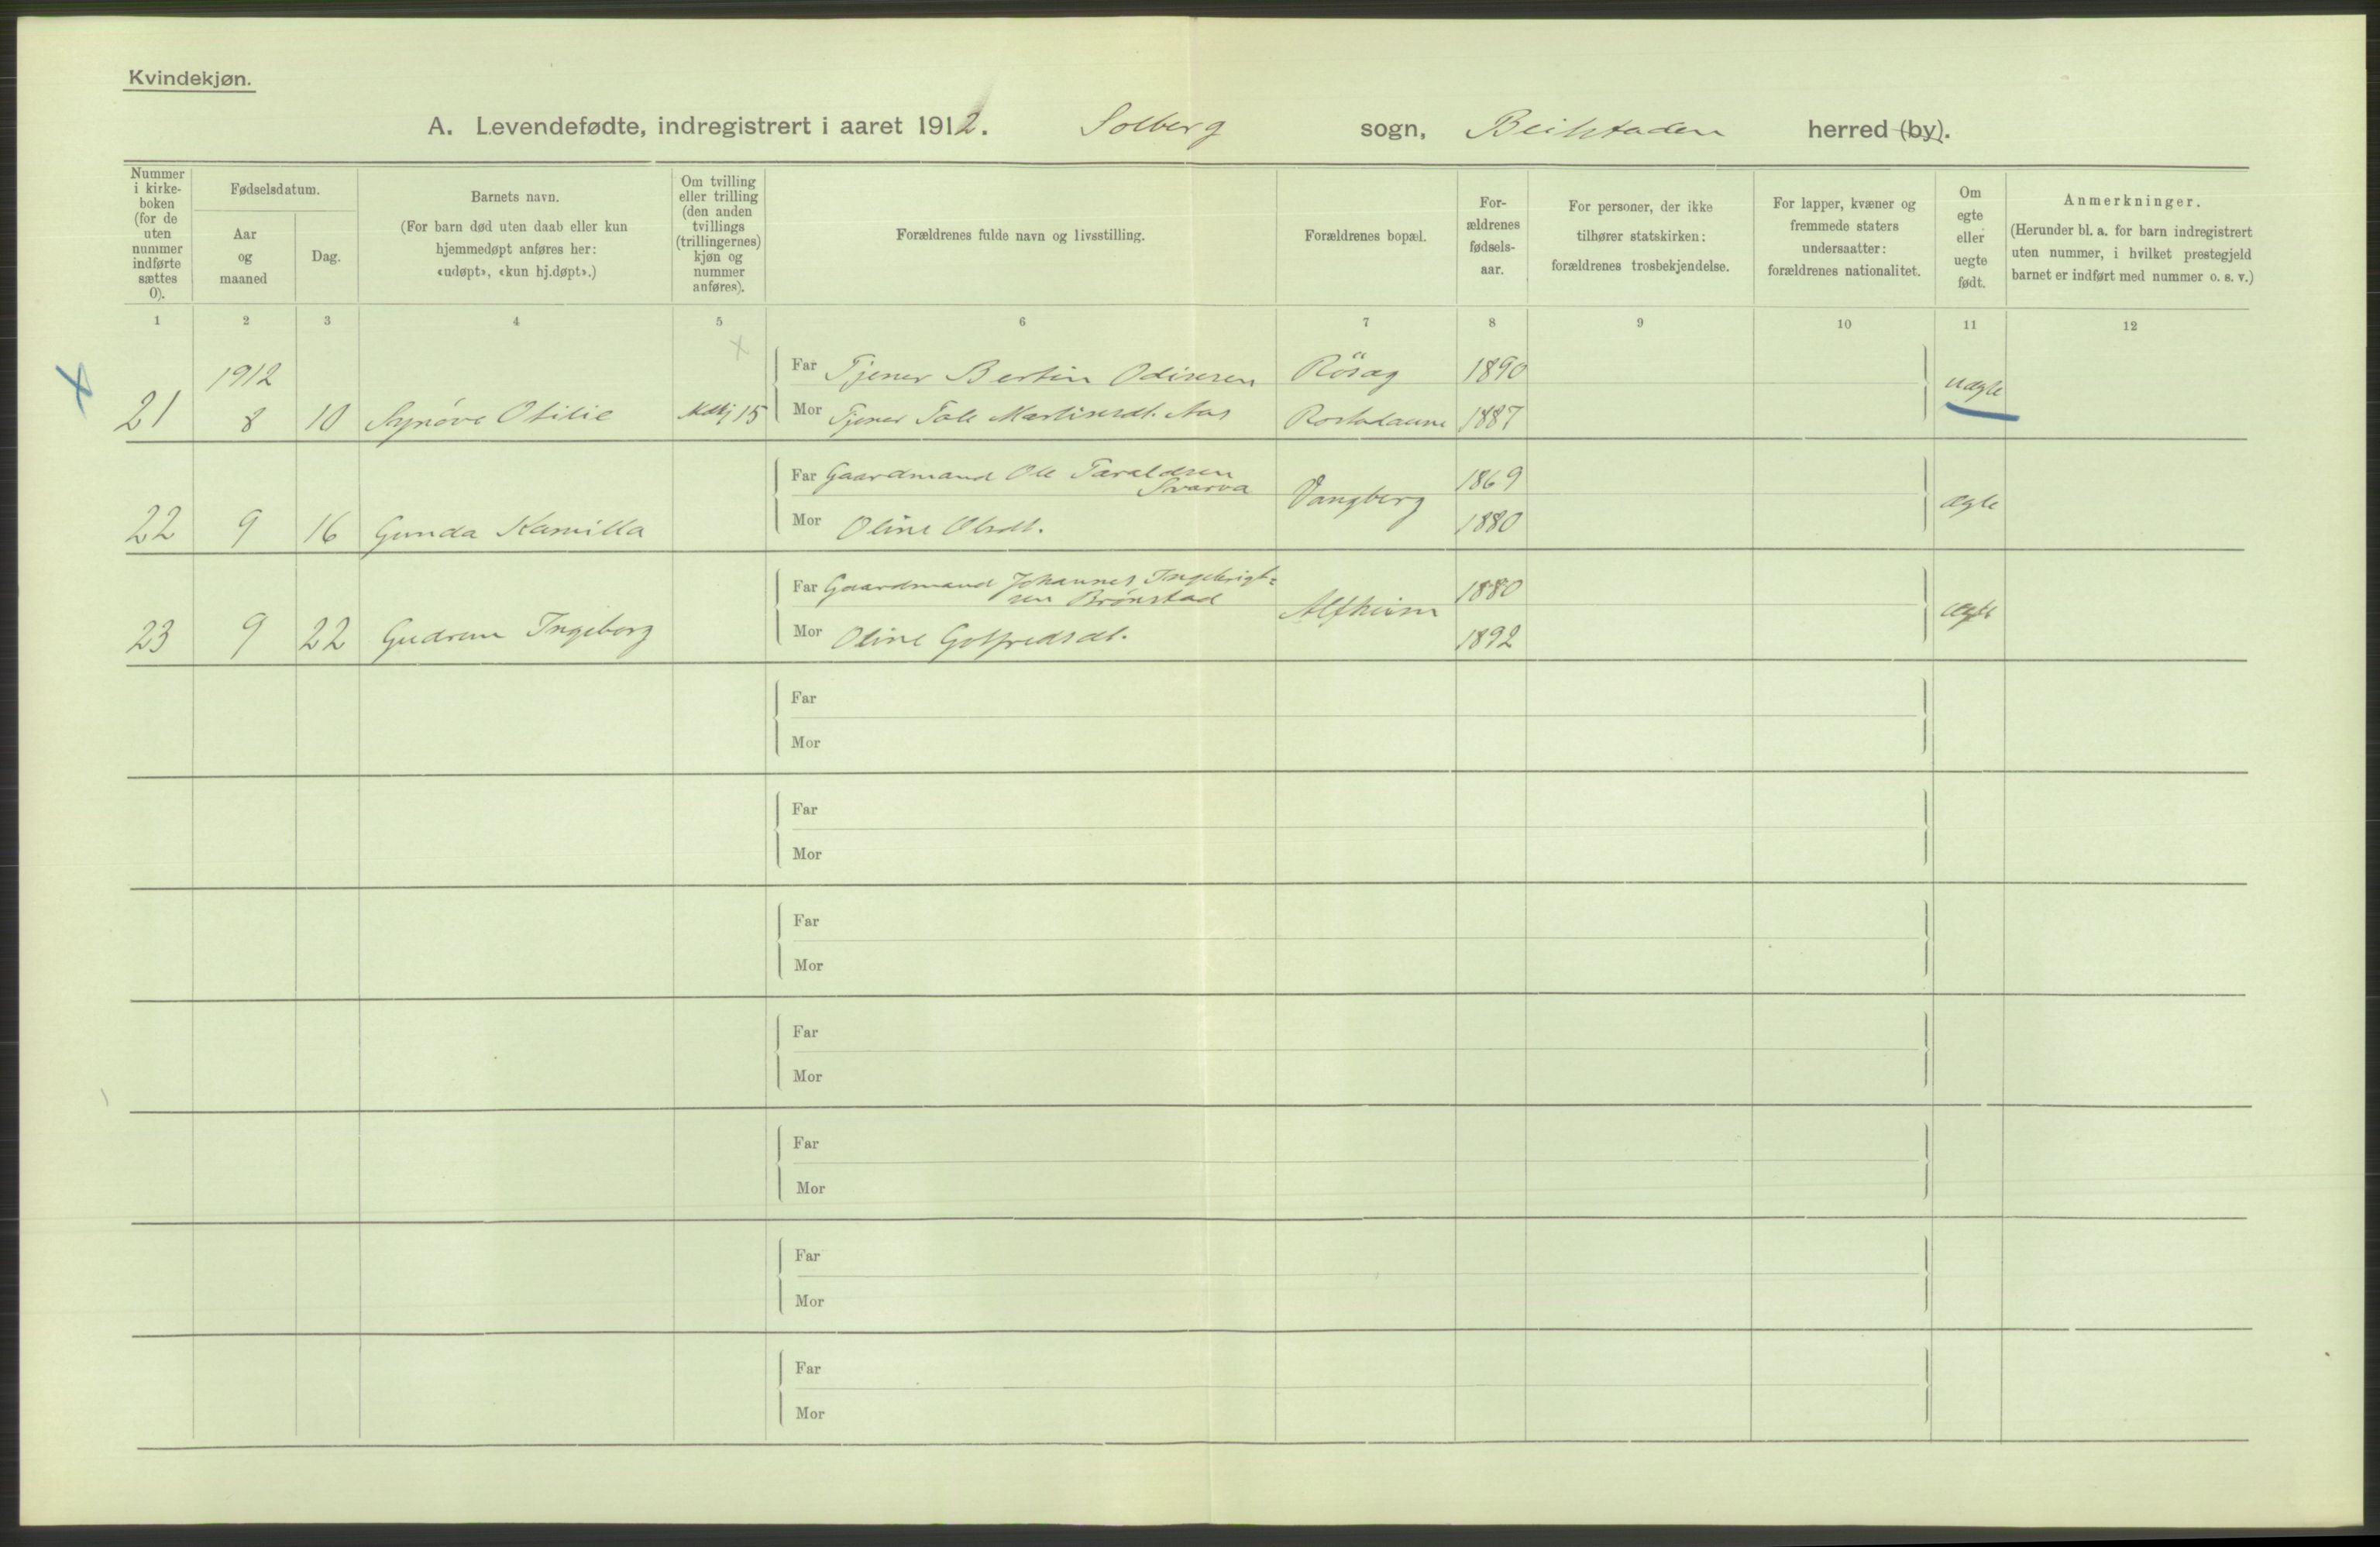 Kvindekjøn.
A. Levendefødte, indregistrert i aaret 1912. Solberg sogn, Beitstaden herred (by).
Nummer i kirke-boken (for de uten nummer indførte sættes 0).
Fødselsdatum.
Aar og maaned
Dag.
Barnets navn.
(For barn død uten daab eller kun hjemmedøpt anføres her: «udøpt», «kun hj.døpt».)
Om tvilling eller trilling (den anden tvillings (trillingernes) kjøn og nummer anføres).
Forældrenes fulde navn og livsstilling.
Forældrenes bopæl.
For-ældrenes fødsels-aar.
For personer, der ikke tilhører statskirken: forældrenes trosbekjendelse.
For lapper, kvæner og fremmede staters undersaatter: forældrenes nationalitet.
Om egte eller uegte født.
Anmerkninger.
(Herunder bl. a. for barn indregistrert uten nummer, i hvilket prestegjeld barnet er indført med nummer o. s. v.)
1 2 3 4 5 6 7 8 9 10 11 12
1912
Far Tjener Bertin Odinsen Rösag 1890
21 8 10 Synöve Otilie 15 Mor Tjener Martinsdt. Aas 1887 uægte
Far Gaardmand Ole Taraldsen
Svarva Vangberg 1869
22 9 16 Gunda Kamilla Mor Oline Olsdt. 1880 ægte
Far Gaardmand Johannes Ingebrigt=
sen Brönstad Alfheim 1880
23 9 22 Gudrun Ingeborg Mor Oline Gotfredsdt. 1892 ægte
Far
Mor
Far
Mor
Far
Mor
Far
Mor
Far
Mor
Far
Mor
Far
Mor